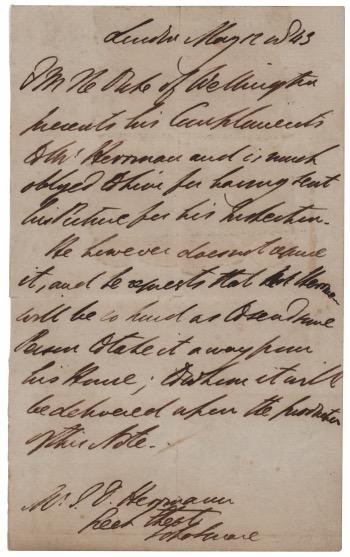 London May 12 1843
F M The Duke of Wellington
presents his Compliments
to Mr Herrman and is much
obliged to him for having sent
his Picture for his Inspection.
He however does not require
it; and he requests that Mr Herrman
will be so kind as to send some
Person to take it away from
his House; to whom it will
be delivered upon the production
of this Note.
Mr Herrmann